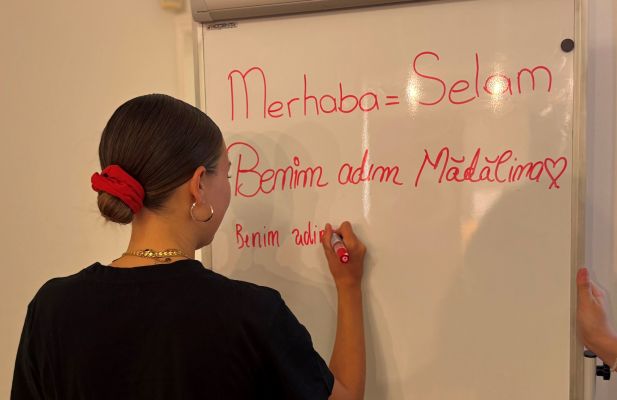 Merhaba = Selam
Benim adım Mădălina♡
Benim adı